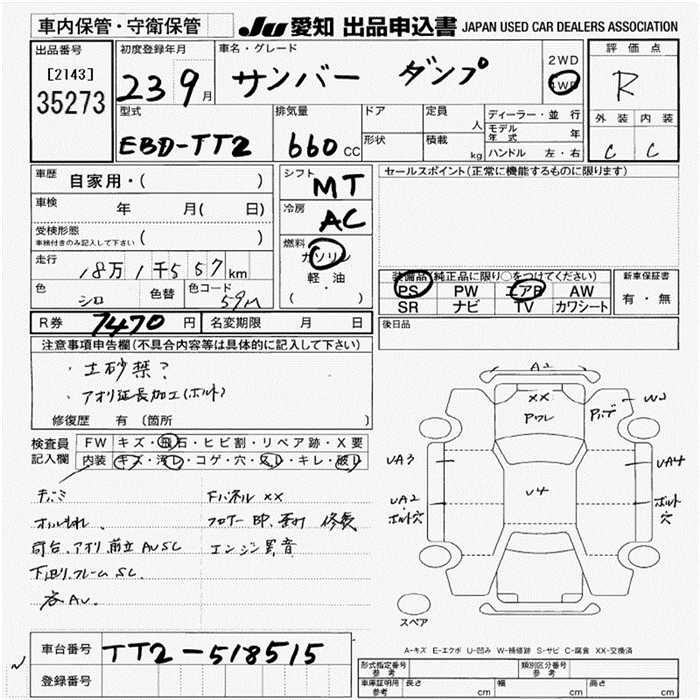 車内保管・守衛保管 JU 愛知 出品申込書 JAPAN USED CAR DEALERS ASSOCIATION
出品番号 初度登録年月 車名・グレード 評価点
[2143] 23 9月 サンバー ダンプ 2WD 4WD R
35273
型式 排気量 ドア 定員 人 ディーラー・並行 外装 内装
EBD-TT2 660CC 形状 積載 kg モデル年式 年 C C
ハンドル 左・右
車歴 自家用・( ) シフト MT セールスポイント(正常に機能するものに限ります)
車検 年 月( 日) 冷房 AC
受検形態 車検付きのみ記入して下さい ( ) 燃料 ガソリン
走行 18万1千557km 軽・油 装備品(純正品に限り○をつけてください) 新車保証書
色 シロ 色替 色コード ( ) PS PW エアB AW 有・無
SR ナビ TV カワシート
R券 7470円 名変期限 月 日 後日品
注意事項申告欄(不具合内容等は具体的に記入して下さい)
・土砂禁?
・アオリ延長加工(ボルト)
修復歴 有 〔箇所 〕
検査員記入欄 FW キズ・飛石・ヒビ割・リペア跡・X要
内装 キズ・汚レ・コゲ・穴・スレ・キレ・破レ
Fパネル XX
フロアー
エンジン異音
下廻り、フレーム SC.
A2
XX
W2
UA3 UA4
U4
UA2 ボルト穴 ボルト穴
スペア
A-キズ E-エクボ U-凹み W-補修跡 S-サビ C-腐食 XX-交換済
車台番号 TT2-518515
登録番号
形式指定番号 参考 類別区分番号 参考
車庫証明用 参考 長さ cm 幅 cm 高さ cm